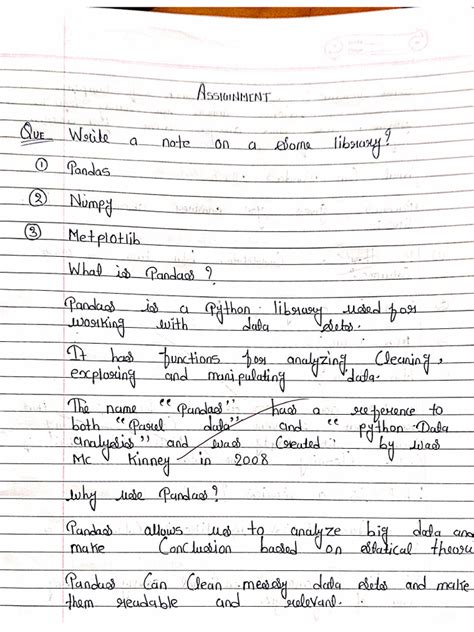 ASSIGNMENT
Que Write a note on a some library?
① Pandas
② Numpy
③ Metplotlib
What is Pandas?
Pandas is a Python library used for
working with data sets.
It has functions for analyzing Cleaning,
exploring and manipulating data.
The name "Pandas" has a reference to
both "Panel data" and "python Data
analysis" and was Created by was
Mc Kinney in 2008
why use Pandas?
Pandas allows us to analyze big data and
make Conclusion based on statical theori
Pandas Can Clean messy data sets and make
them readable and relevant.